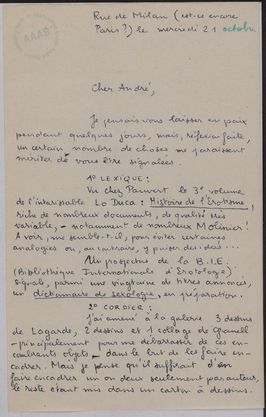 Rue de Milan (est-ce encore
Paris ?) le mercredi 21 octobre
Cher André,
Je pensais vous laisser en paix
pendant quelques jours, mais, réflexion faite,
un certain nombre de choses me paraissent
mériter de vous être signalées.
1º LEXIQUE :
Vu chez Pauvert le 3e volume
de l'intarissable Lo Duca : Histoire de l'Erotisme,
riche de nombreux documents, de qualité très
variable, - notamment de nombreux Molinier !
A voir, me semble-t-il, pour éviter certaines
analogies ou, au contraire, y puiser des idées...
Un prospectus de la B.I.E.
(Bibliothèque Internationale d'Erotologie)
signale, parmi une vingtaine de titres annoncés,
un dictionnaire de sexologie, en préparation.
2º CORDIER :
J'ai amené à la galerie 3 dessins
de Lagarde, 2 dessins et 1 collage de
- principalement pour me débarrasser de ces en-
combrants objets - dans le but de les faire en-
cadrer. Mais je pense qu'il suffirait d'en
faire encadrer un ou deux seulement par auteur,
le reste étant mis dans un carton à dessins.